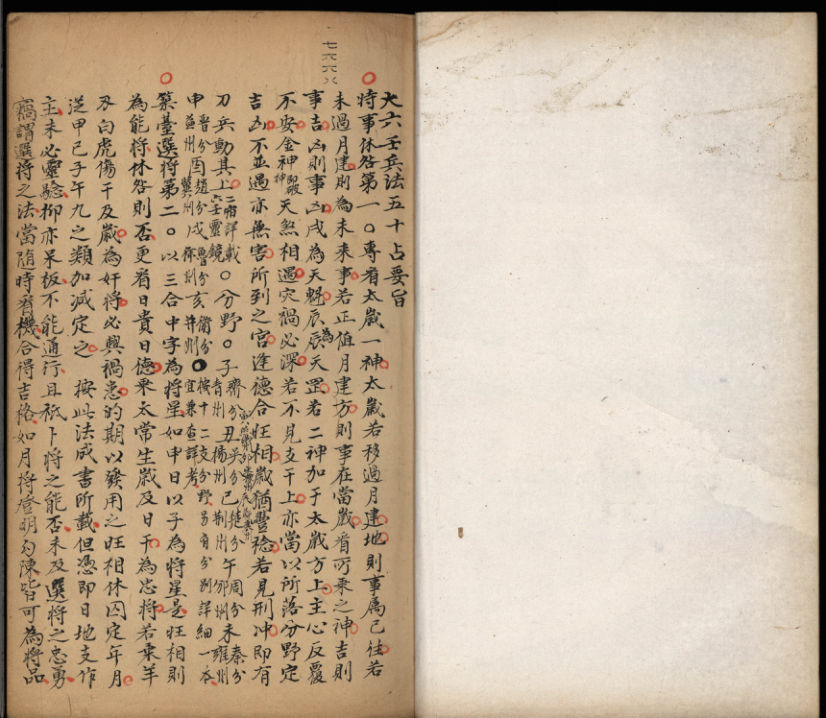 大六壬兵法五十占要旨
時事休咎第一○專看太歲一神太歲若移過月建地則事屬已往若
未過月建則為未來事若正值月建方則事在當歲看所乘之神吉則
事吉凶則事凶戌為天魁辰為天罡若二神加于太歲方上主心反覆
不安金神 天煞相遇灾禍必深若不見支干上亦當以所落分野定
吉凶不並過亦無害所到之宫逢德合旺相歲猶豐稔若見刑冲即有
刀兵動其上二宿詳載六壬靈鏡○分野○子齊分青州丑吳分楊州巳楚分荆州午周分 未秦分雍州
申晉分益州酉趙分冀州戌魯分徐州亥衛分并州●按十二支分野 一本宜兼查詳考
築臺選將第二○以三合中字為將星如申日以子為將星是旺相則
為能將休咎則否更看日貴日德乘太常生歲及日干為忠將若乘羊
刃白虎傷干及歲為奸將必興禍患的期以發用之旺相休囚定年月
從甲己子午九之類加減定之 按此法成書所載但憑即日地支作
主未必靈驗抑亦呆板不能通行且祇卜將之能否未及選將之忠勇
竊謂選將之法當隨時看機合得吉格如月將登明勾陳皆可為將品
七六六六